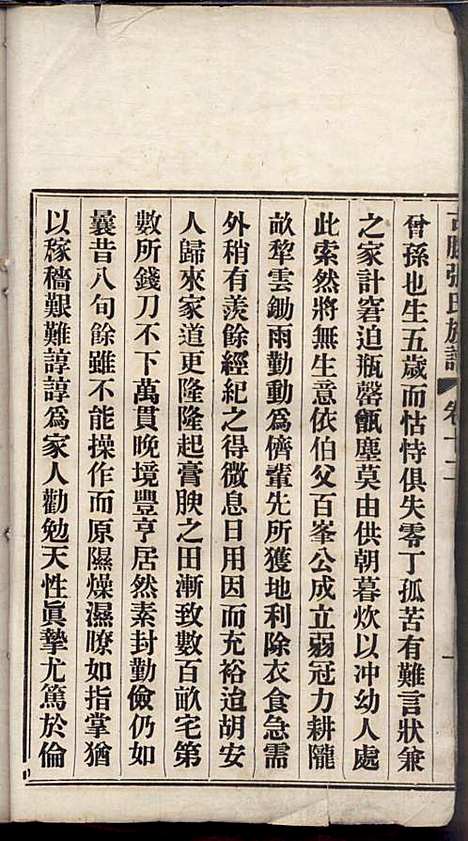 曾孫也生五歲而怙恃俱失零丁孤苦有難言狀兼
之家計窘迫瓶罄甑塵莫由供朝暮炊以冲幼人處
此索然將無生意依伯父百峯公成立弱冠力耕隴
畝犂雲鋤雨勤動爲儕輩先所獲地利除衣食急需
外稍有羨餘經紀之得微息日用因而充裕迨胡安
人歸來家道更隆隆起膏腴之田漸致數百畝宅第
數所錢刀不下萬貫晚境豐亨居然素封勤儉仍如
曩昔八旬餘雖不能操作而原隰燥濕暸如指掌猶
以稼穡艱難諄諄爲家人勸勉天性眞摯尤篤於倫
張氏族譜 卷十二